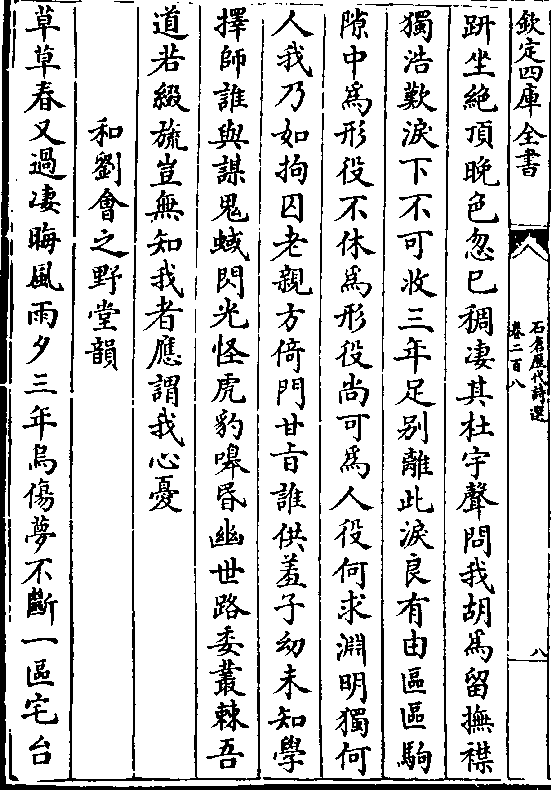 欽定四庫全書
石倉歷代詩選
卷二百八
八
趼坐絶頂晩色忽已稠凄其杜宇聲問我胡爲留撫襟
獨浩歎淚下不可收三年足别離此淚良有由區區駒
隙中爲形役不休爲形役尚可爲人役何求淵明獨何
人我乃如拘囚老親方倚門甘㫖誰供羞子幼未知學
擇師誰與謀鬼蜮閃光怪虎豹嘷昏幽世路委叢棘吾
道若綴旒豈無知我者應謂我心憂
和劉會之野堂韻
草草春又過凄晦風雨夕三年烏傷夢不斷一區宅台